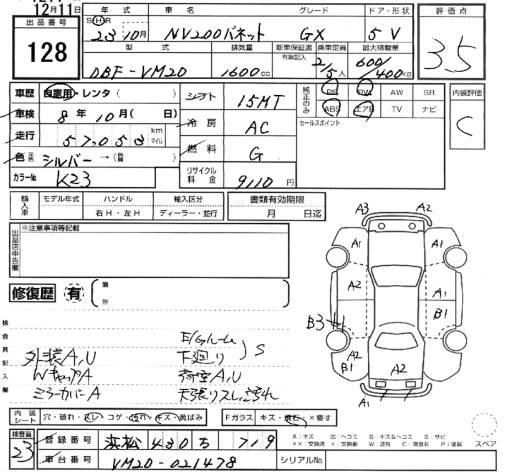 12月11日
出品番号 128
年式 23 10月
車名 NV200バネット
グレード GX
ドア・形状 5 V
評価点 3.5
型式 DBF-VM20
排気量 1600cc
新車保証書 有無記入
乗車定員 2/5人
最大積載量 600/400kg
車歴 自家用・レンタ( )
車検 8年10月( 日)
走行 57053 km マイル
色 シルバー →( )
カラーNo K23
シフト 15MT
冷房 AC
燃料 G
リサイクル料金 9110円
純正のみ PS PW AW SR
ABS エアB TV ナビ
セールスポイント
内装評価 C
輸入車 モデル年式 ハンドル 右H・左H 輸入区分 ディーラー・並行
書類有効期限 月 日迄
出品店申告欄 ※注意事項等記載
修復歴 有 箇所
検査員記入欄
外装A,U
Wキャップ A
ミラーカバーA
E/Gルーム
下廻り S
荷室A,U
天張りスレ,汚れ
A3 A2
A1 A1
A2 A1
B3 B1
A2 A2
B1
A2
A1 A1
内装シート 穴・破れ・スレ・コゲ・汚れ・キズ・黄ばみ
Fガラス キズ・飛石・×要す
A:キズ U:ヘコミ B:キズ&ヘコミ S:サビ
スペア
検査員 23
登録番号 浜松 430 ち 719
車台番号 VM20-021478
シリアルNo